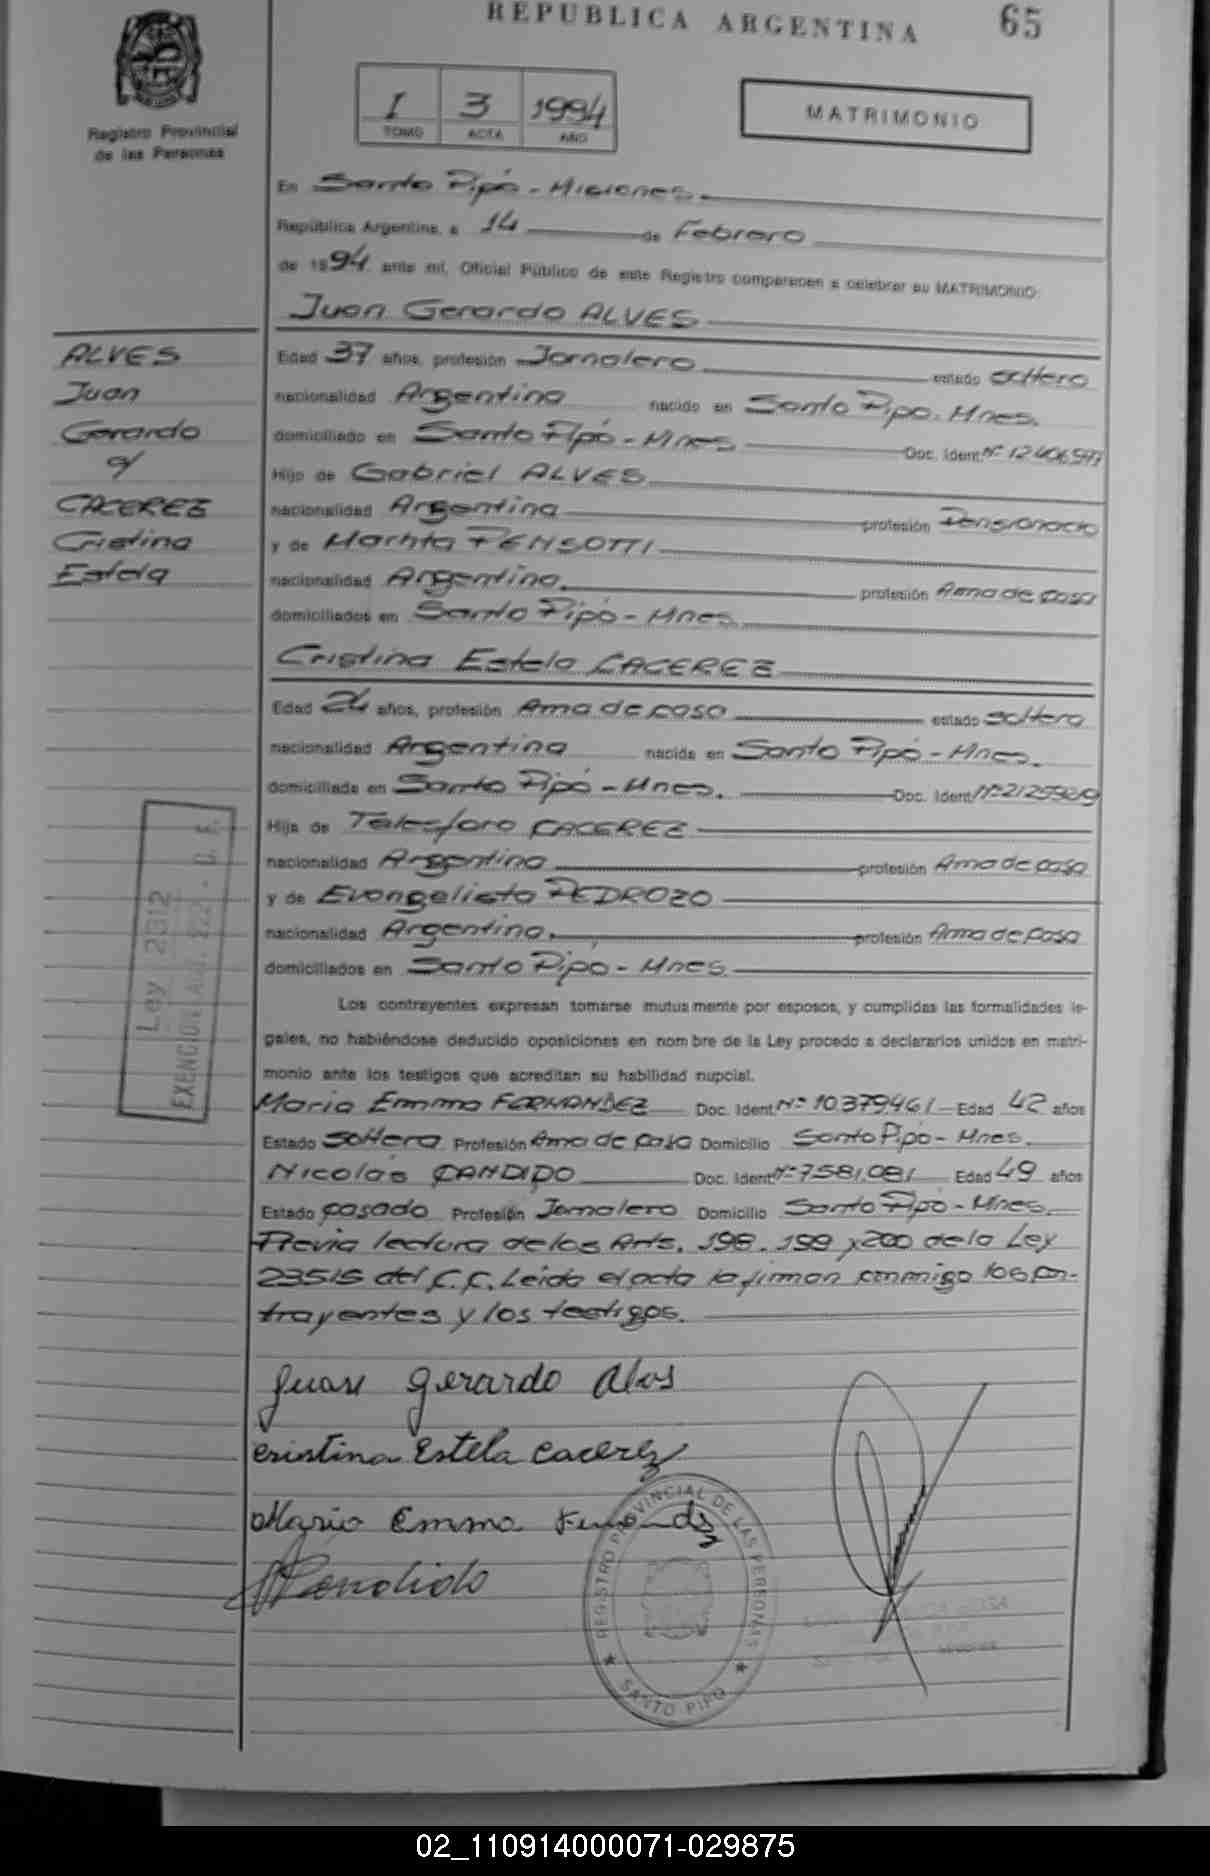 REPUBLICA ARGENTINA
65
Registro Provincial
de las Personas
I 3 1994
TOMO ACTA AÑO
MATRIMONIO
En Santo Pipó - Misiones.
República Argentina, a 14 de Febrero
de 1994 ante mi, Oficial Público de este Registro comparecen a celebrar su MATRIMONIO:
Juan Gerardo ALVES
ALVES
Juan
Gerardo
c/
CACEREZ
Cristina
Estela
Edad 37 años, profesión Jornalero estado soltero
nacionalidad Argentina nacido en Santo Pipó. Mnes.
domiciliado en Santo Pipó - Mnes Doc. Ident. Nº
Hijo de Gabriel ALVES
nacionalidad Argentina profesión Pensionado
y de PENSOTTI
nacionalidad Argentina. profesión Ama de casa
domiciliados en Santo Pipó - Mnes.
Cristina Estela CACEREZ
Edad 24 años, profesión Ama de casa estado soltera
nacionalidad Argentina nacida en Santo Pipó - Mnes.
domiciliada en Santo Pipó - Mnes. Doc. Ident. Nº
Hija de Telesforo CACEREZ
nacionalidad Argentina profesión Ama de casa
y de Evangelista PEDROZO
nacionalidad Argentina. profesión Ama de casa
domiciliados en Santo Pipó - Mnes.
Ley 2312
EXENCION Art. 222 - D. F.
Los contrayentes expresan tomarse mutuamente por esposos, y cumplidas las formalidades le-
gales, no habiéndose deducido oposiciones en nombre de la Ley procedo a declararlos unidos en matri-
monio ante los testigos que acreditan su habilidad nupcial.
Maria Emma FERNANDEZ Doc. Ident. Nº 10.379.461 Edad 42 años
Estado Soltera Profesión Ama de casa Domicilio Santo Pipó - Mnes.
Nicolás CANDIDO Doc. Ident. Nº 7.581.081 Edad 49 años
Estado casado Profesión Jornalero Domicilio Santo Pipó - Mnes.
Previa lectura de los Arts. 198. 199 y 200 de la Ley
23515 del C.C. Leida el acta la firman conmigo los con-
trayentes y los testigos.
Juan Gerardo Alves
Cristina Estela Cacerez
Maria Emma
Candido
REGISTRO PROVINCIAL DE LAS PERSONAS
SANTO PIPO
02_110914000071-029875